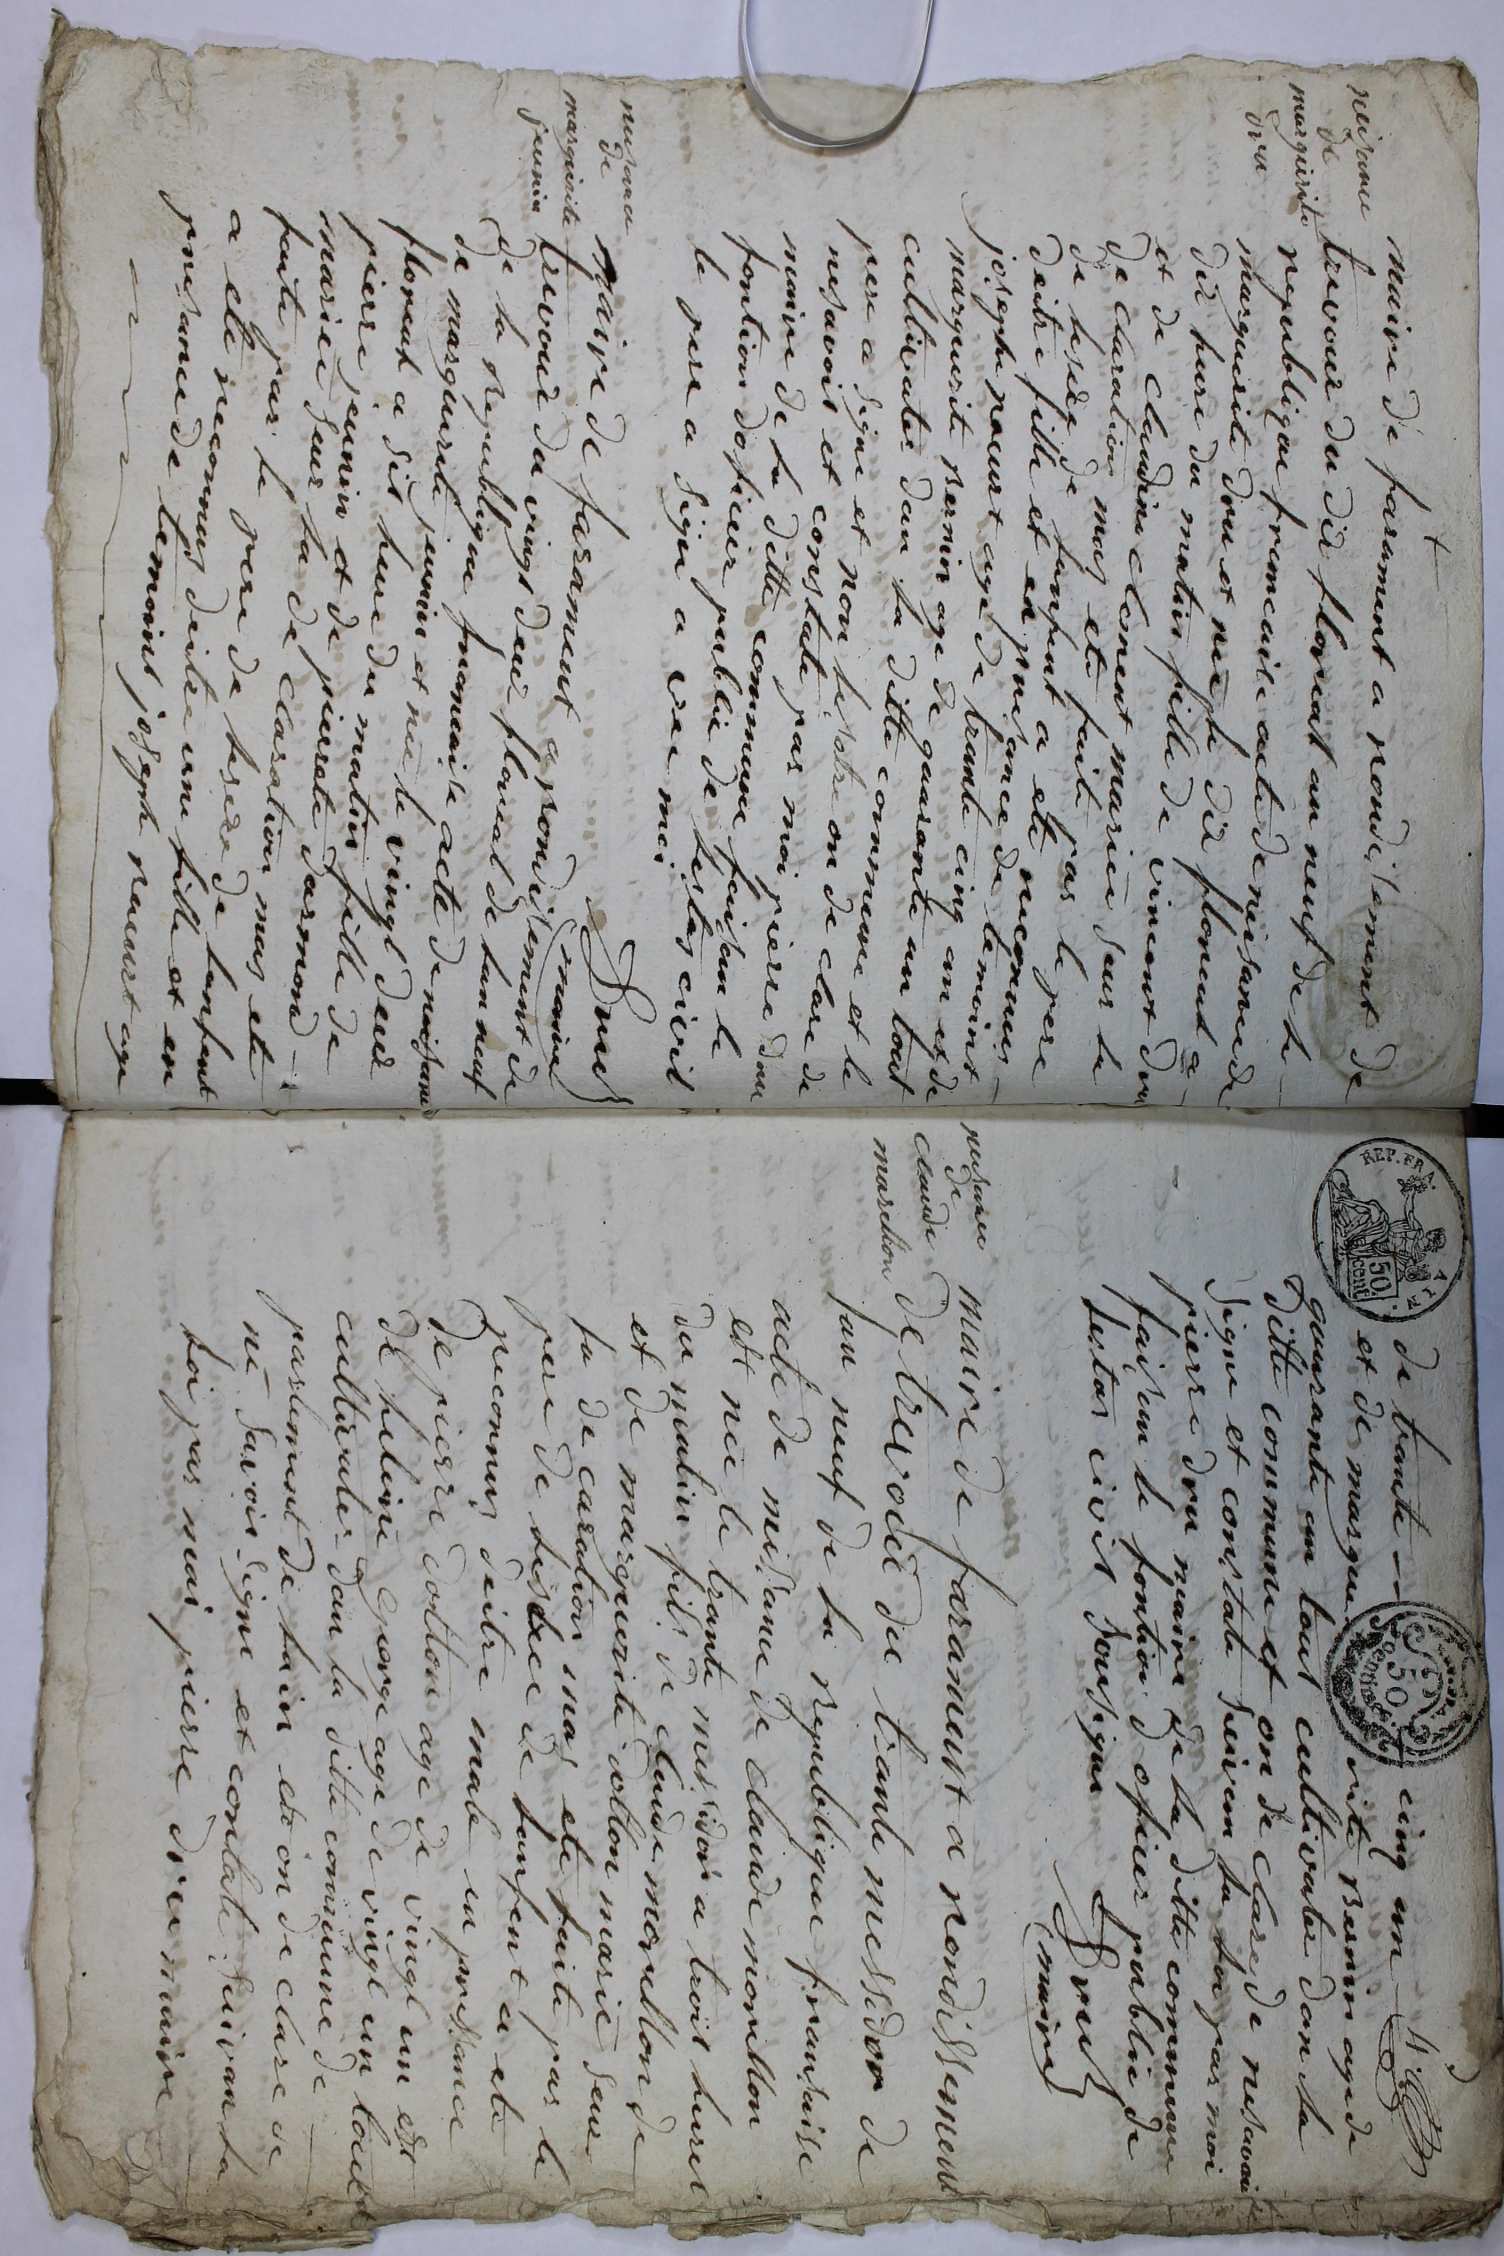 neisance
de
marguerite
dru
maire de farament a rondisement de
trevoux du dix floreat an neuf de la
republique francaise acte de neisance de
marguerite drou et nee le dix floreat a
dix heure du matin fille de vincent drou
et de claudine clement marice seur la
de claration mas ete faite par le pere
de leseix de lanfant a ete reconnus
deitre fille et en presance de temoint
joseph ravurt age de trante cinq an et de
marguerite pernin age de quarante un tout
cultivater dan la ditte commune et le
pere a signe et non le sotre on de clare de
nesavoir et constate par moi pierre drou
maire de la ditte commune faisan le
fontion dofisier public de lestas civil
le pere a signe a vec moi
Drus
maire
neisance
de
marguerite
junin
maire de farament a rondisement de
trevoux du vingt deux floreal de lan neuf
de la republique francaise acte de naissance
de marguerite junin et nee le vingt deux
floreat a six heure du matin fille de
pierre junin et de pierete darmond
marice seur la de claration mas ete
faite par le pere de lesexe de lanfent
a ete reconnus deitre une fille et en
presance de temoins joseph ravurt age
de trante cinq an
et de marguerite pernin age de
quarante un tout cultivater dan la
ditte commune et on de clare de nesavoir
signe et constate suivan la loi par moi
pierre dru maire de la ditte commune
faisan le fontion dofisier publie de
lestas civil sousigne
Drus
maire
neisance
de
claude
morellon
maire de farament a rondissement
de trevoux du trante messidor de
lan neuf de la republique fransaise
acte de neisance de claude morellon
et nee le trante messidor a trois heures
du matin fils de claude morellon
et de marguerite cotton marice seur
la de claration mas ete faite par le
pere de lisexe de lanfent a ete
reconnus deitre male en presance
de pierre cotton age de vingt un et
de heline george age de vingt un tout
cultivater dan la ditte commune de
parlement de lain et on de clare de
ne savoir signe et contate suivan la
loi par moi pierre drus maire
REP. FRA.
50
cent.
50
centimes